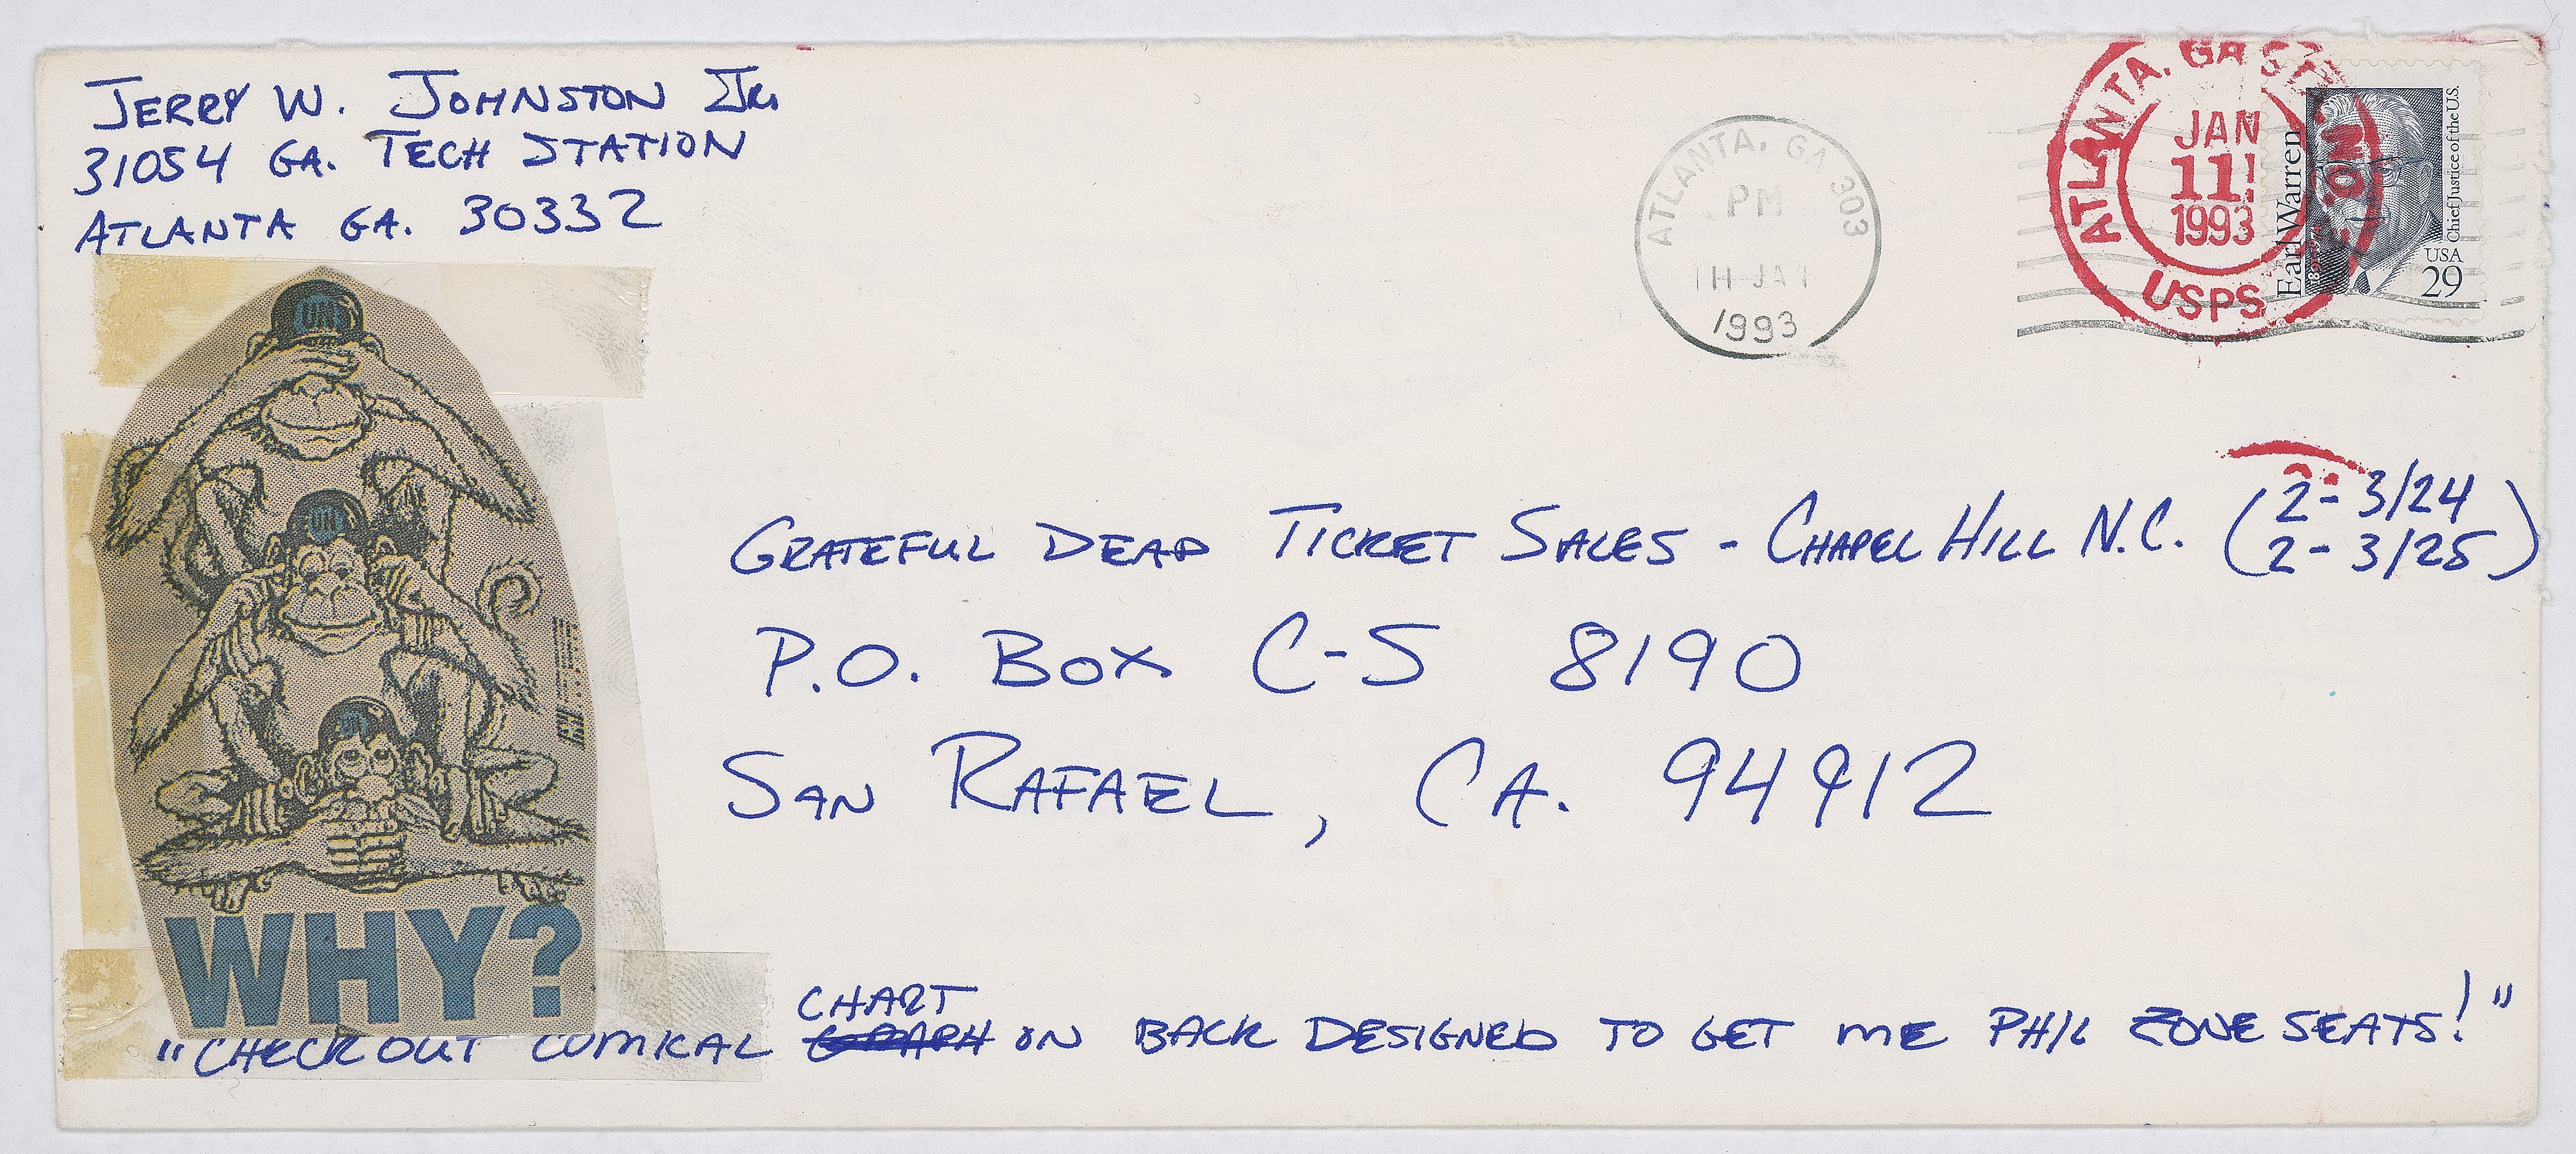 JERRY W. JOHNSTON JR.
31054 GA. TECH STATION
ATLANTA GA. 30332
ATLANTA, GA 303
PM
JAN
1993
ATLANTA, GA
JAN
11
1993
USPS
Earl Warren
Chief Justice of the U.S.
USA
29
GRATEFUL DEAD TICKET SALES - CHAPEL HILL N.C. (2 - 3/24
2 - 3/25)
P.O. BOX C-S 8190
SAN RAFAEL, CA. 94912
WHY?
CHART
"CHECK OUT COMICAL GRAPH ON BACK DESIGNED TO GET ME PHIL ZONE SEATS!"